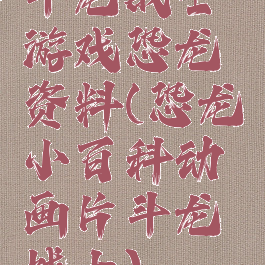 斗龙战士
游戏恐龙
资料(恐龙
小百科动
画片斗龙
战士)